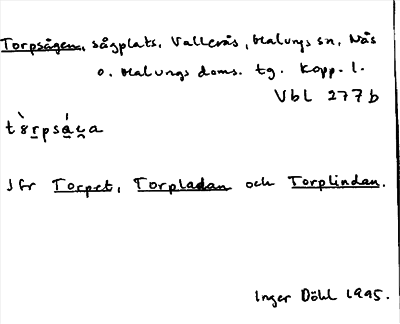 Torpsågen, sågplats. Vallerås, Malungs sn, Nås
o. Malungs doms. tg. Kopp. l.
Vbl 277b
Jfr Torpet, Torpladan och Torplindan.
Inger Döhl 1995.